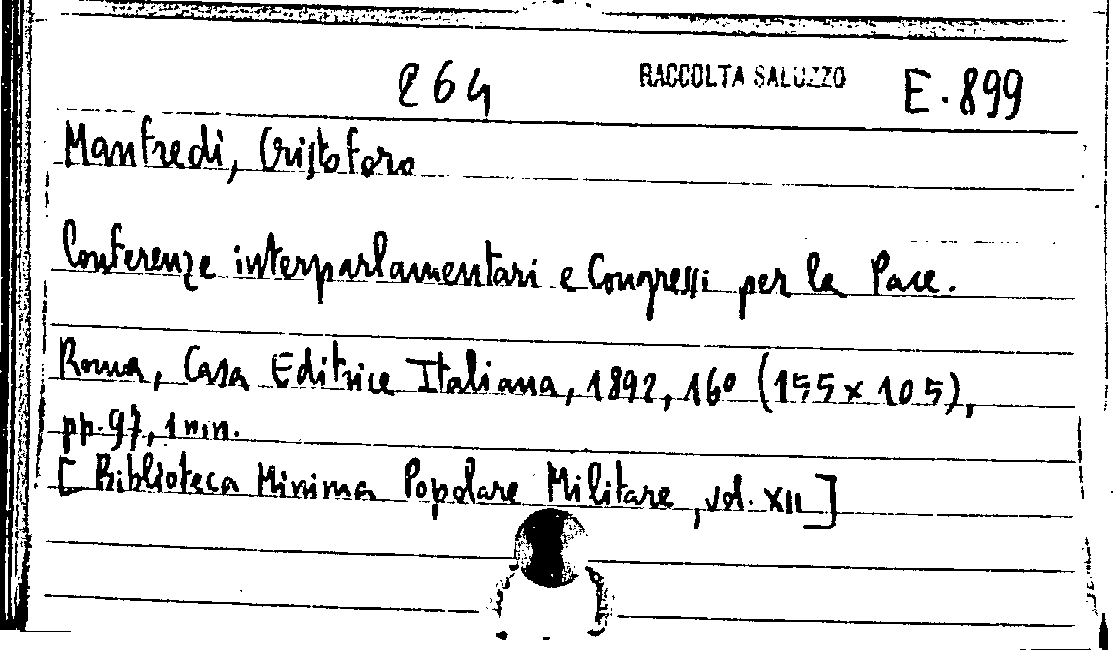 264 RACCOLTA SALUZZO E.899
Manfredi, Cristoforo
Conferenze interparlamentari e Congressi per la Pace.
Roma, Casa Editrice Italiana, 1892, 16º (155 x 105),
pp. 97, 1 nin.
[Biblioteca Minima Popolare Militare, vol. XII]